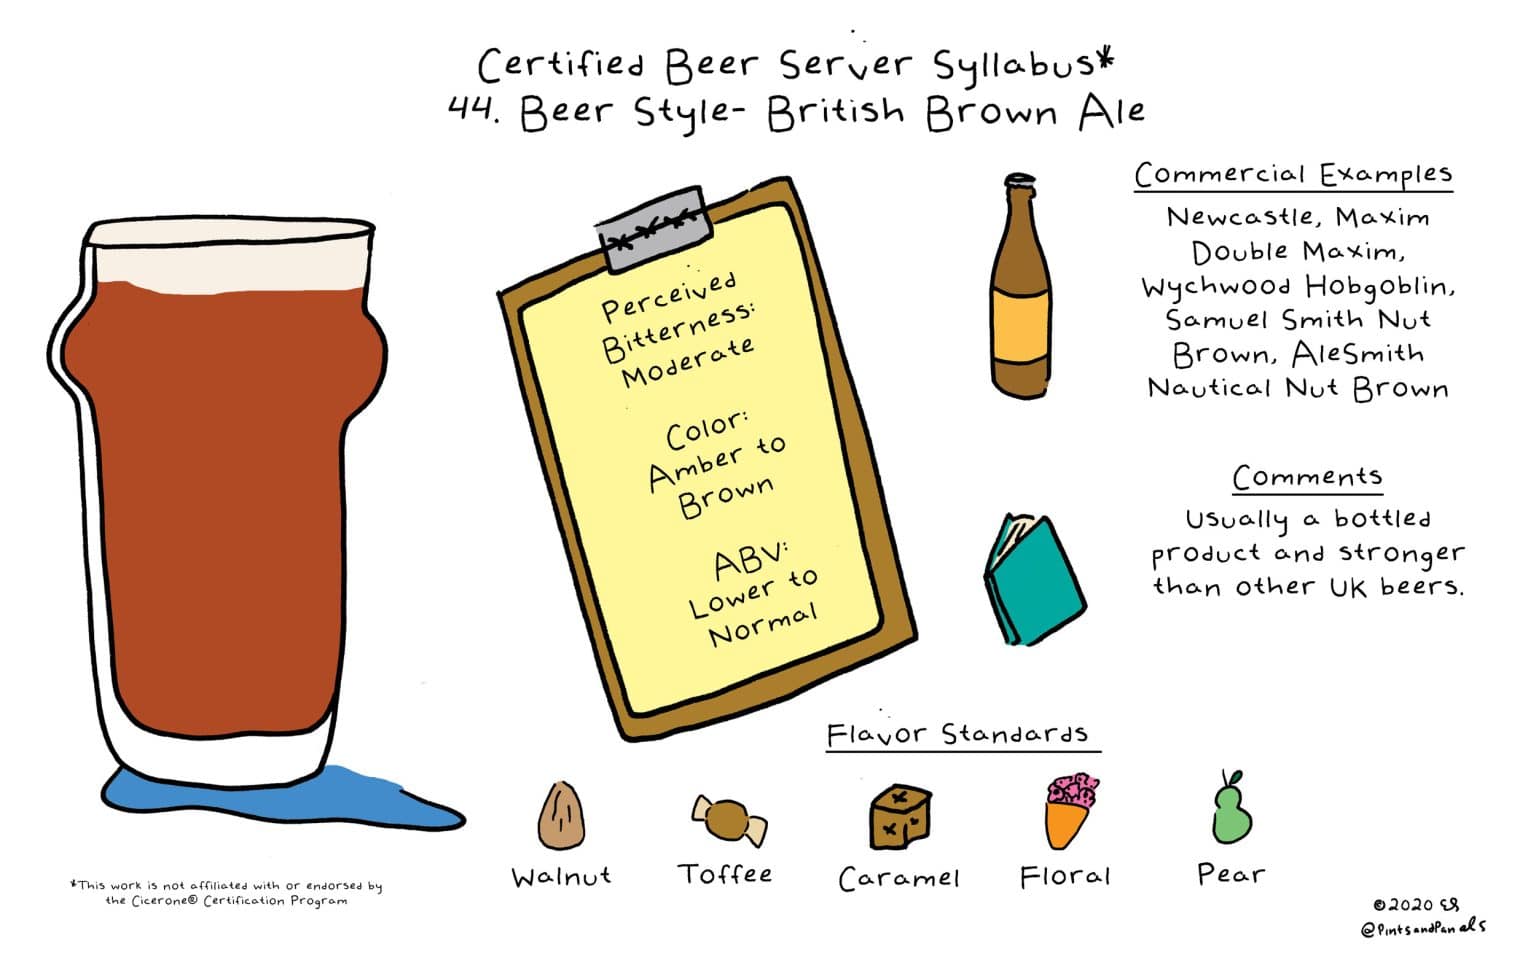 Certified Beer Server Syllabus*
44. Beer Style- British Brown Ale
Perceived
Bitterness:
Moderate
Color:
Amber to
Brown
ABV:
Lower to
Normal
Commercial Examples
Newcastle, Maxim
Double Maxim,
Wychwood Hobgoblin,
Samuel Smith Nut
Brown, AleSmith
Nautical Nut Brown
Comments
Usually a bottled
product and stronger
than other UK beers.
Flavor Standards
Walnut
Toffee
Caramel
Floral
Pear
*This work is not affiliated with or endorsed by
the Cicerone® Certification Program
©2020
@PintsandPanels